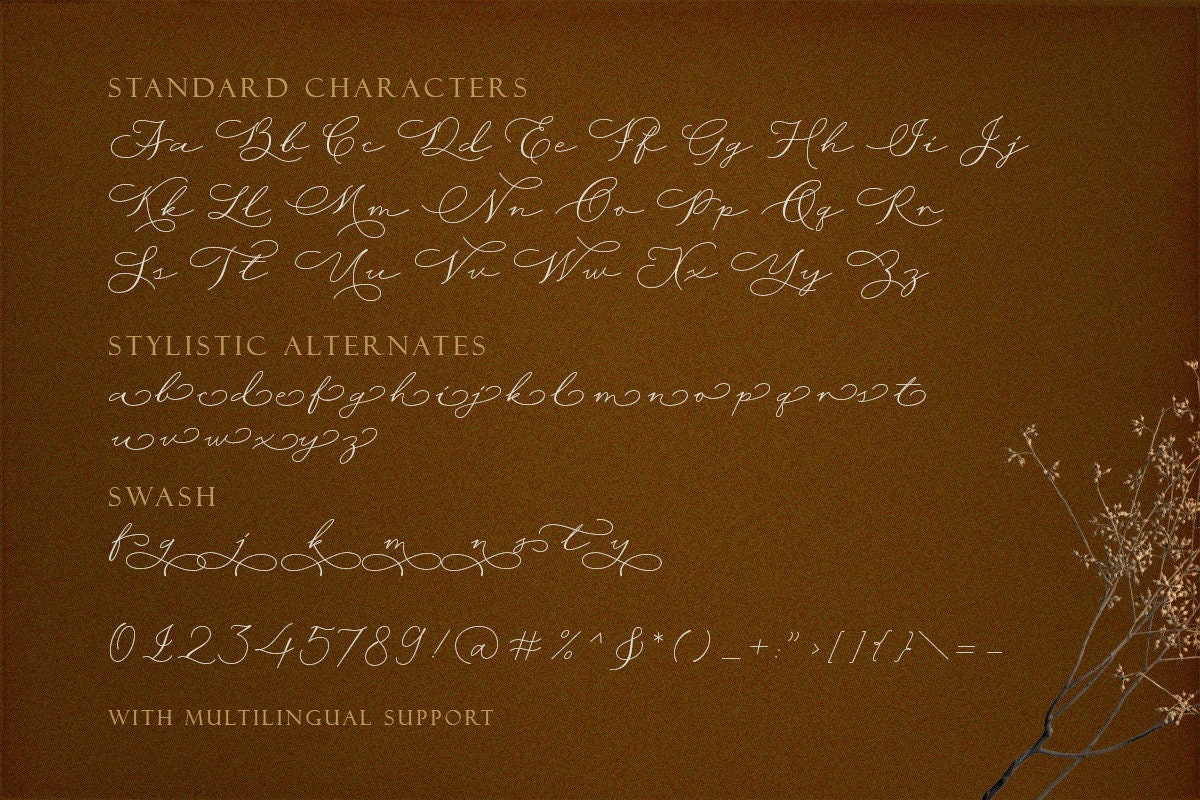 STANDARD CHARACTERS
Aa Bb Cc Dd Ee Ff Gg Hh Ii Jj
Kk Ll Mm Nn Oo Pp Qq Rr
Ss Tt Uu Vv Ww Xx Yy Zz
STYLISTIC ALTERNATES
abcdefghijklmnopqrst
uvwxyz
SWASH
fgjkmnsty
012345789!@#%^&*()_+:”›[]{}\=-
WITH MULTILINGUAL SUPPORT